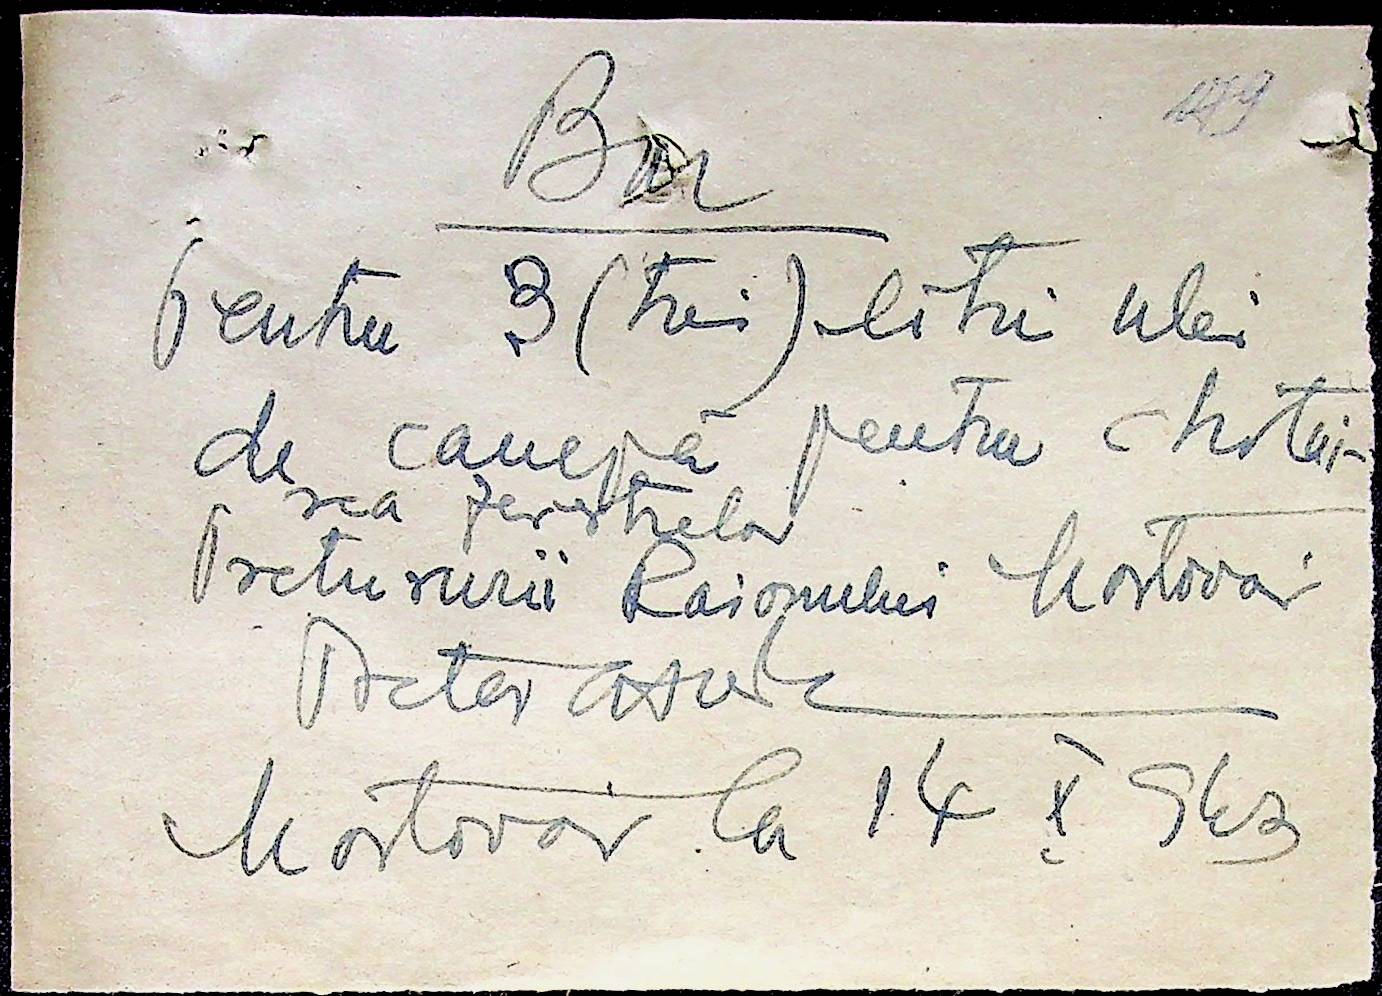 Bon
pentru 3 (trei) litri ulei
de canepă pentru chitui-
rea ferestrelor
Preturii Raionului Mostovoi
Pretor
Mostovoi la 14 X 943